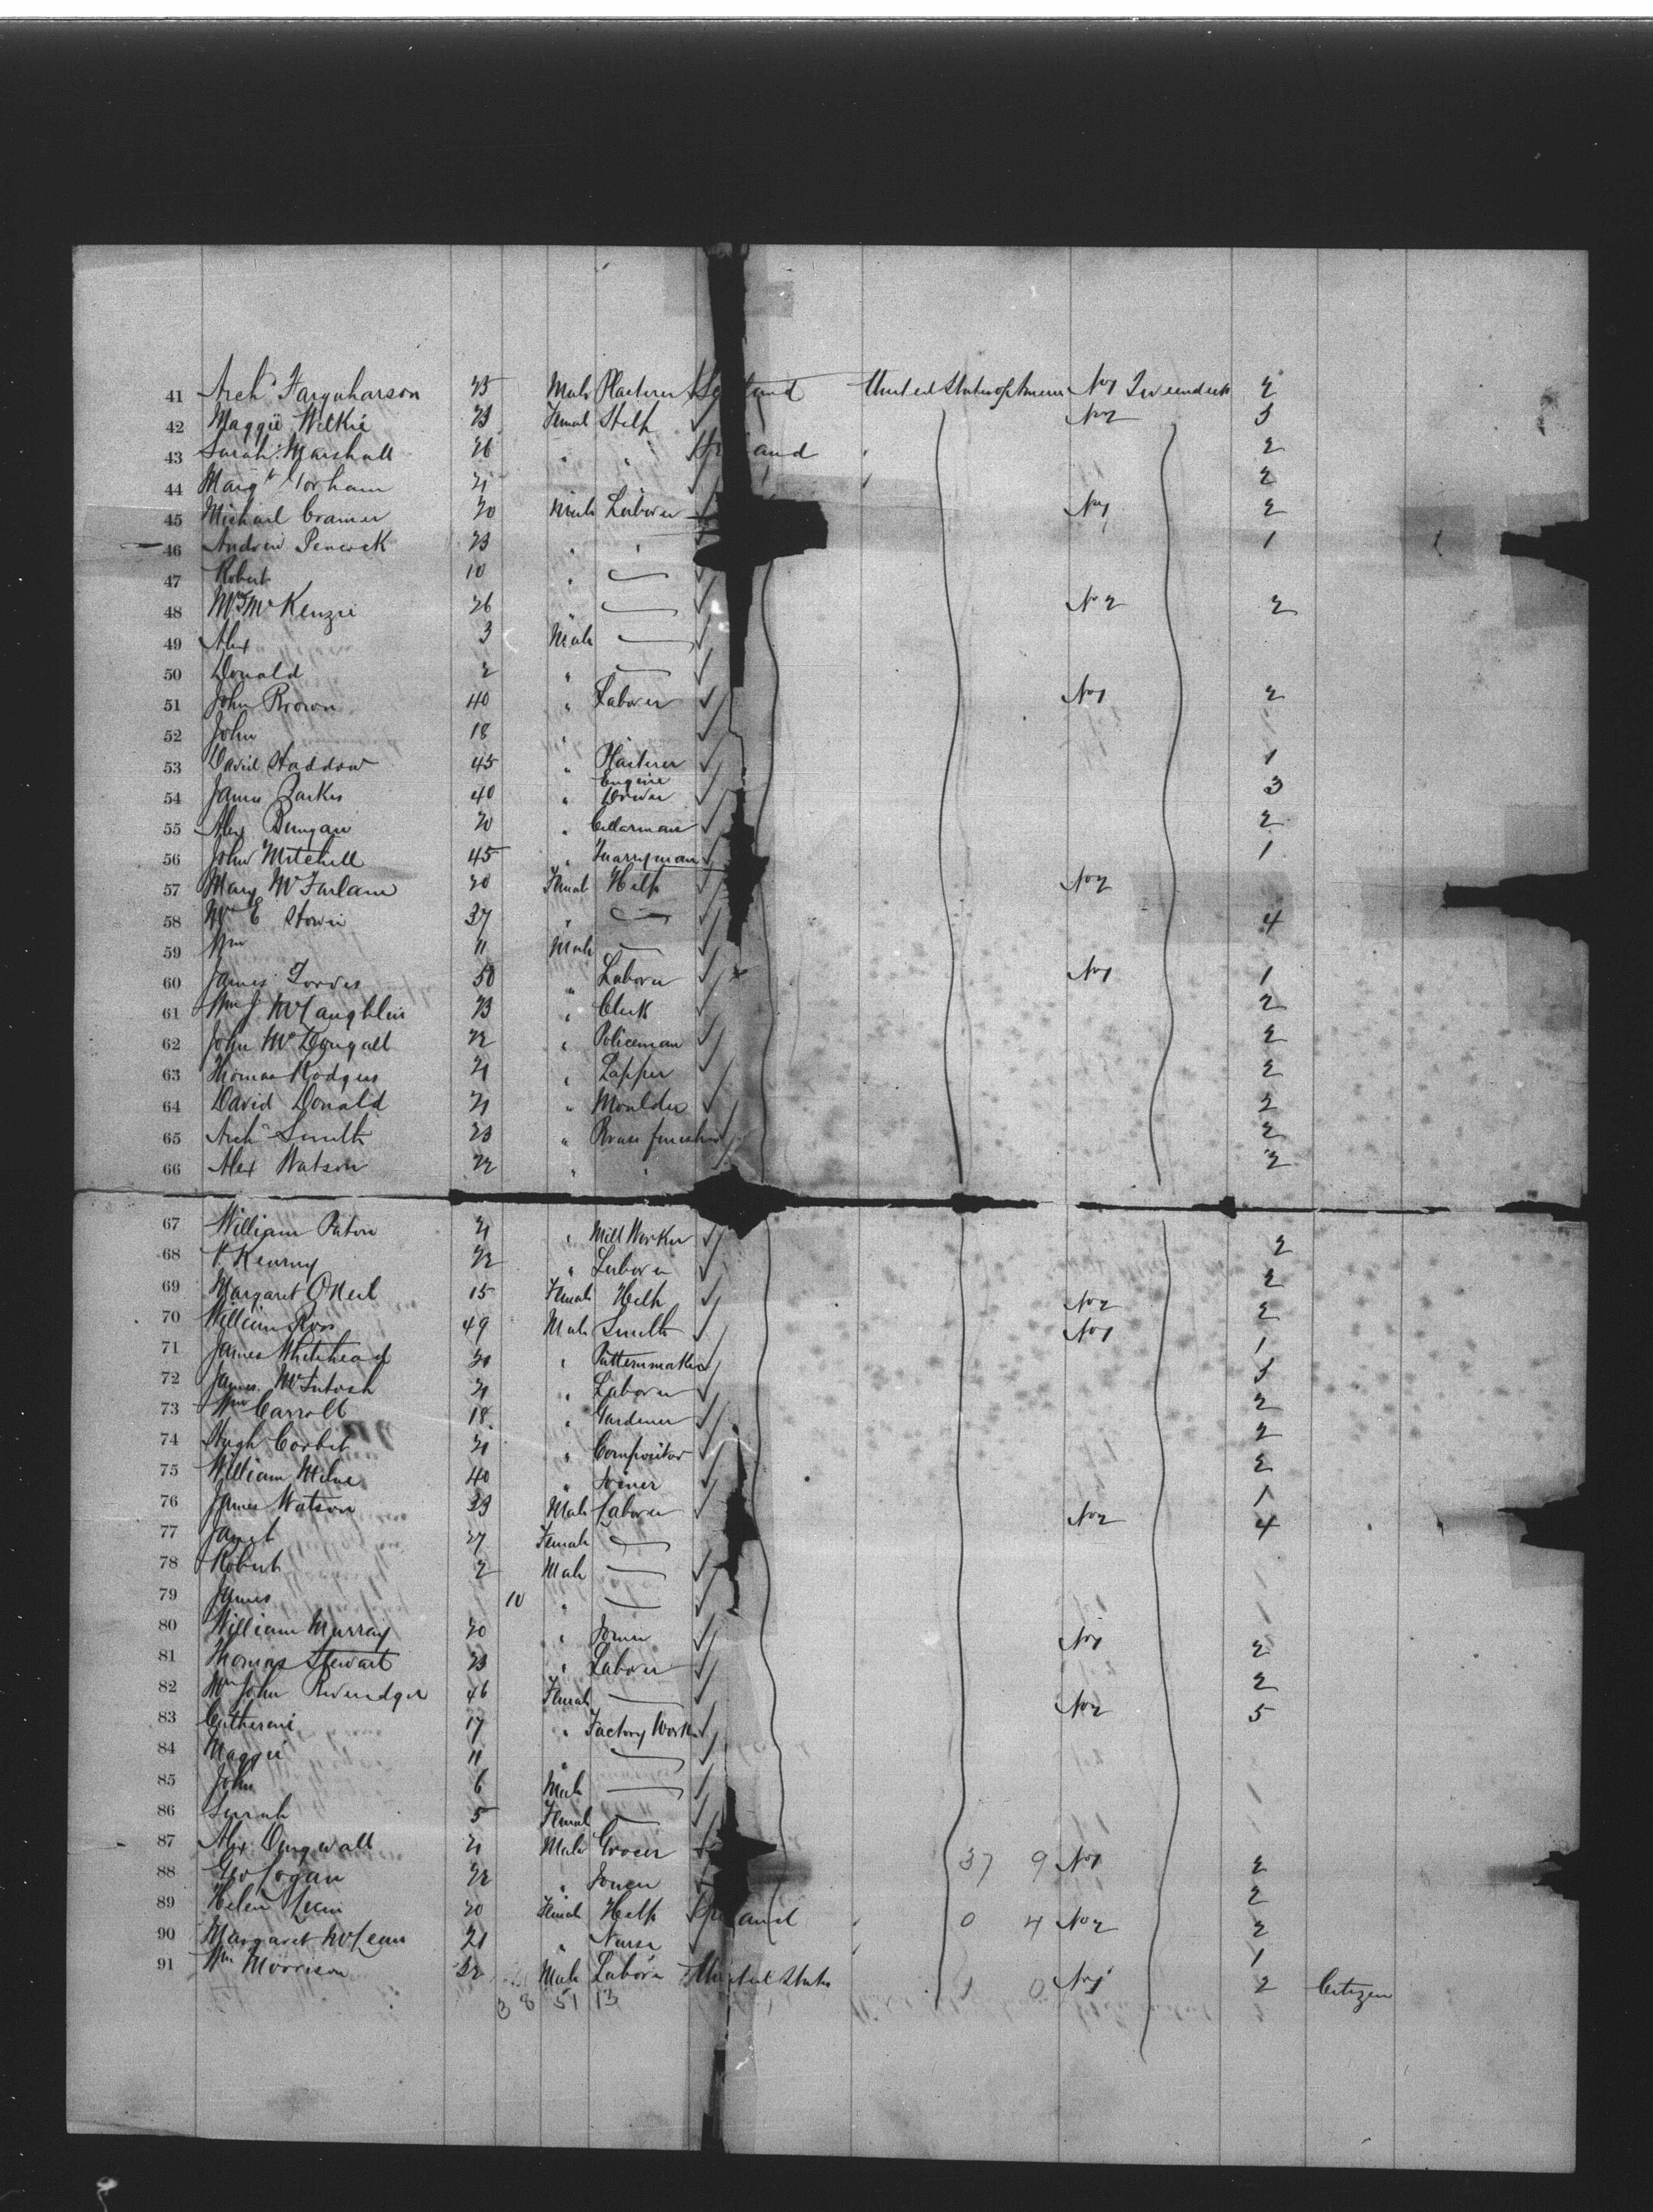 41 Arch.d Farquharson 25 Male Plasterer United States of America No 1 2
42 Maggie Wilkie 23 Female Help No 2 3
43 Sarah Marshall 26 " " 2
44 Marg.t 21 2
45 Michael Cramer 20 Male Laborer No 1 2
46 Andrew Peacock 23 " " 1
47 Robert 10 "
48 Mrs McKenzie 26 " No 2 2
49 Alex 3 Male
50 Donald 2 "
51 John Brown 40 " Laborer No 1 2
52 John 18 "
53 David Haddow 45 " Plasterer 1
54 James 40 " Engine Driver 3
55 Alex 20 " Cellarman 2
56 John Mitchell 45 " Quarryman 1
57 Mary McFarlane 20 Female Help No 2
58 Mrs E 37 " 4
59 Wm 11 Male
60 James 50 " Laborer No 1 1
61 Wm J McLaughlin 23 " Clerk 2
62 John McDougall 22 " Policeman 2
63 Thomas Rodgers 21 " Lapper 2
64 David Donald 21 " Moulder 2
65 Arch.d Smith 23 " Brass finisher 2
66 Alex Watson 22 " " 2
67 William Paton 21 " Mill Worker 2
68 Kearny 22 " Laborer 2
69 Margaret ONeil 15 Female Help No 2 2
70 William Ross 49 Male Smith No 1 1
71 James Whitehead 30 " Patternmaker 3
72 James McIntosh 21 " Laborer 2
73 Wm Carroll 18 " Gardener 2
74 Hugh Corbet 21 " Compositor 2
75 William Milne 40 " Joiner 1
76 James Watson 33 Male Laborer No 2 4
77 Janet 27 Female
78 Robert 2 Male
79 James 10 "
80 William Murray 20 " Joiner No 1 2
81 Thomas Stewart 23 " Laborer 2
82 Mrs John 46 Female No 2 5
83 Catherine 17 " Factory Worker
84 Maggie 11 "
85 John 6 Male
86 Sarah 5 Female
87 Alex Dingwall 21 Male Grocer 37 9 No 1 2
88 Geo Logan 22 " Joiner 2
89 Helen 20 Female Help 0 4 No 2 2
90 Margaret McLean 21 " Nurse 1
91 Wm Morrison 32 Male Laborer United States 1 0 No 1 2 Citizen
38 51 13